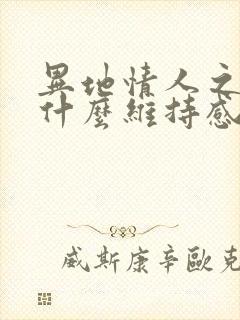 異地情人之
什麼維持感
威斯康辛歐克